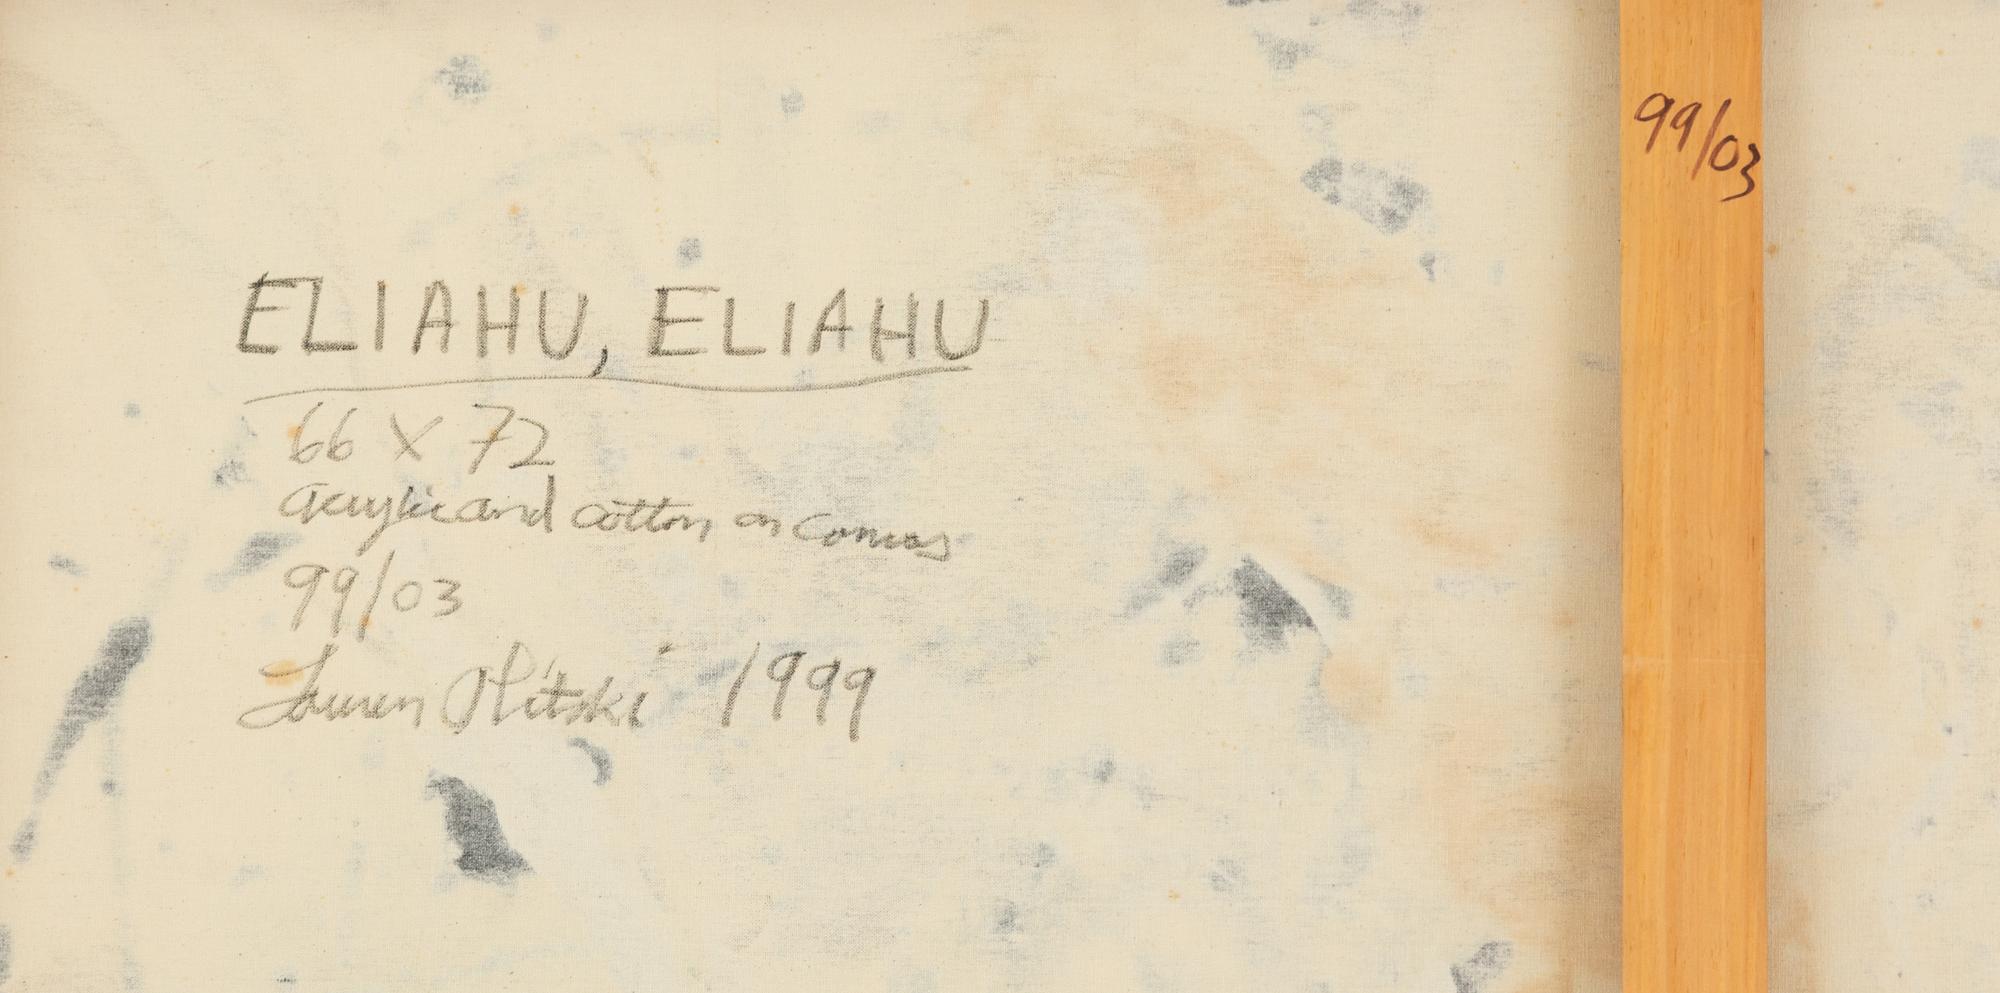 ELIAHU, ELIAHU
66 X 72
acrylic and cotton on canvas
99/03
Lauren Olitski 1999
99/03